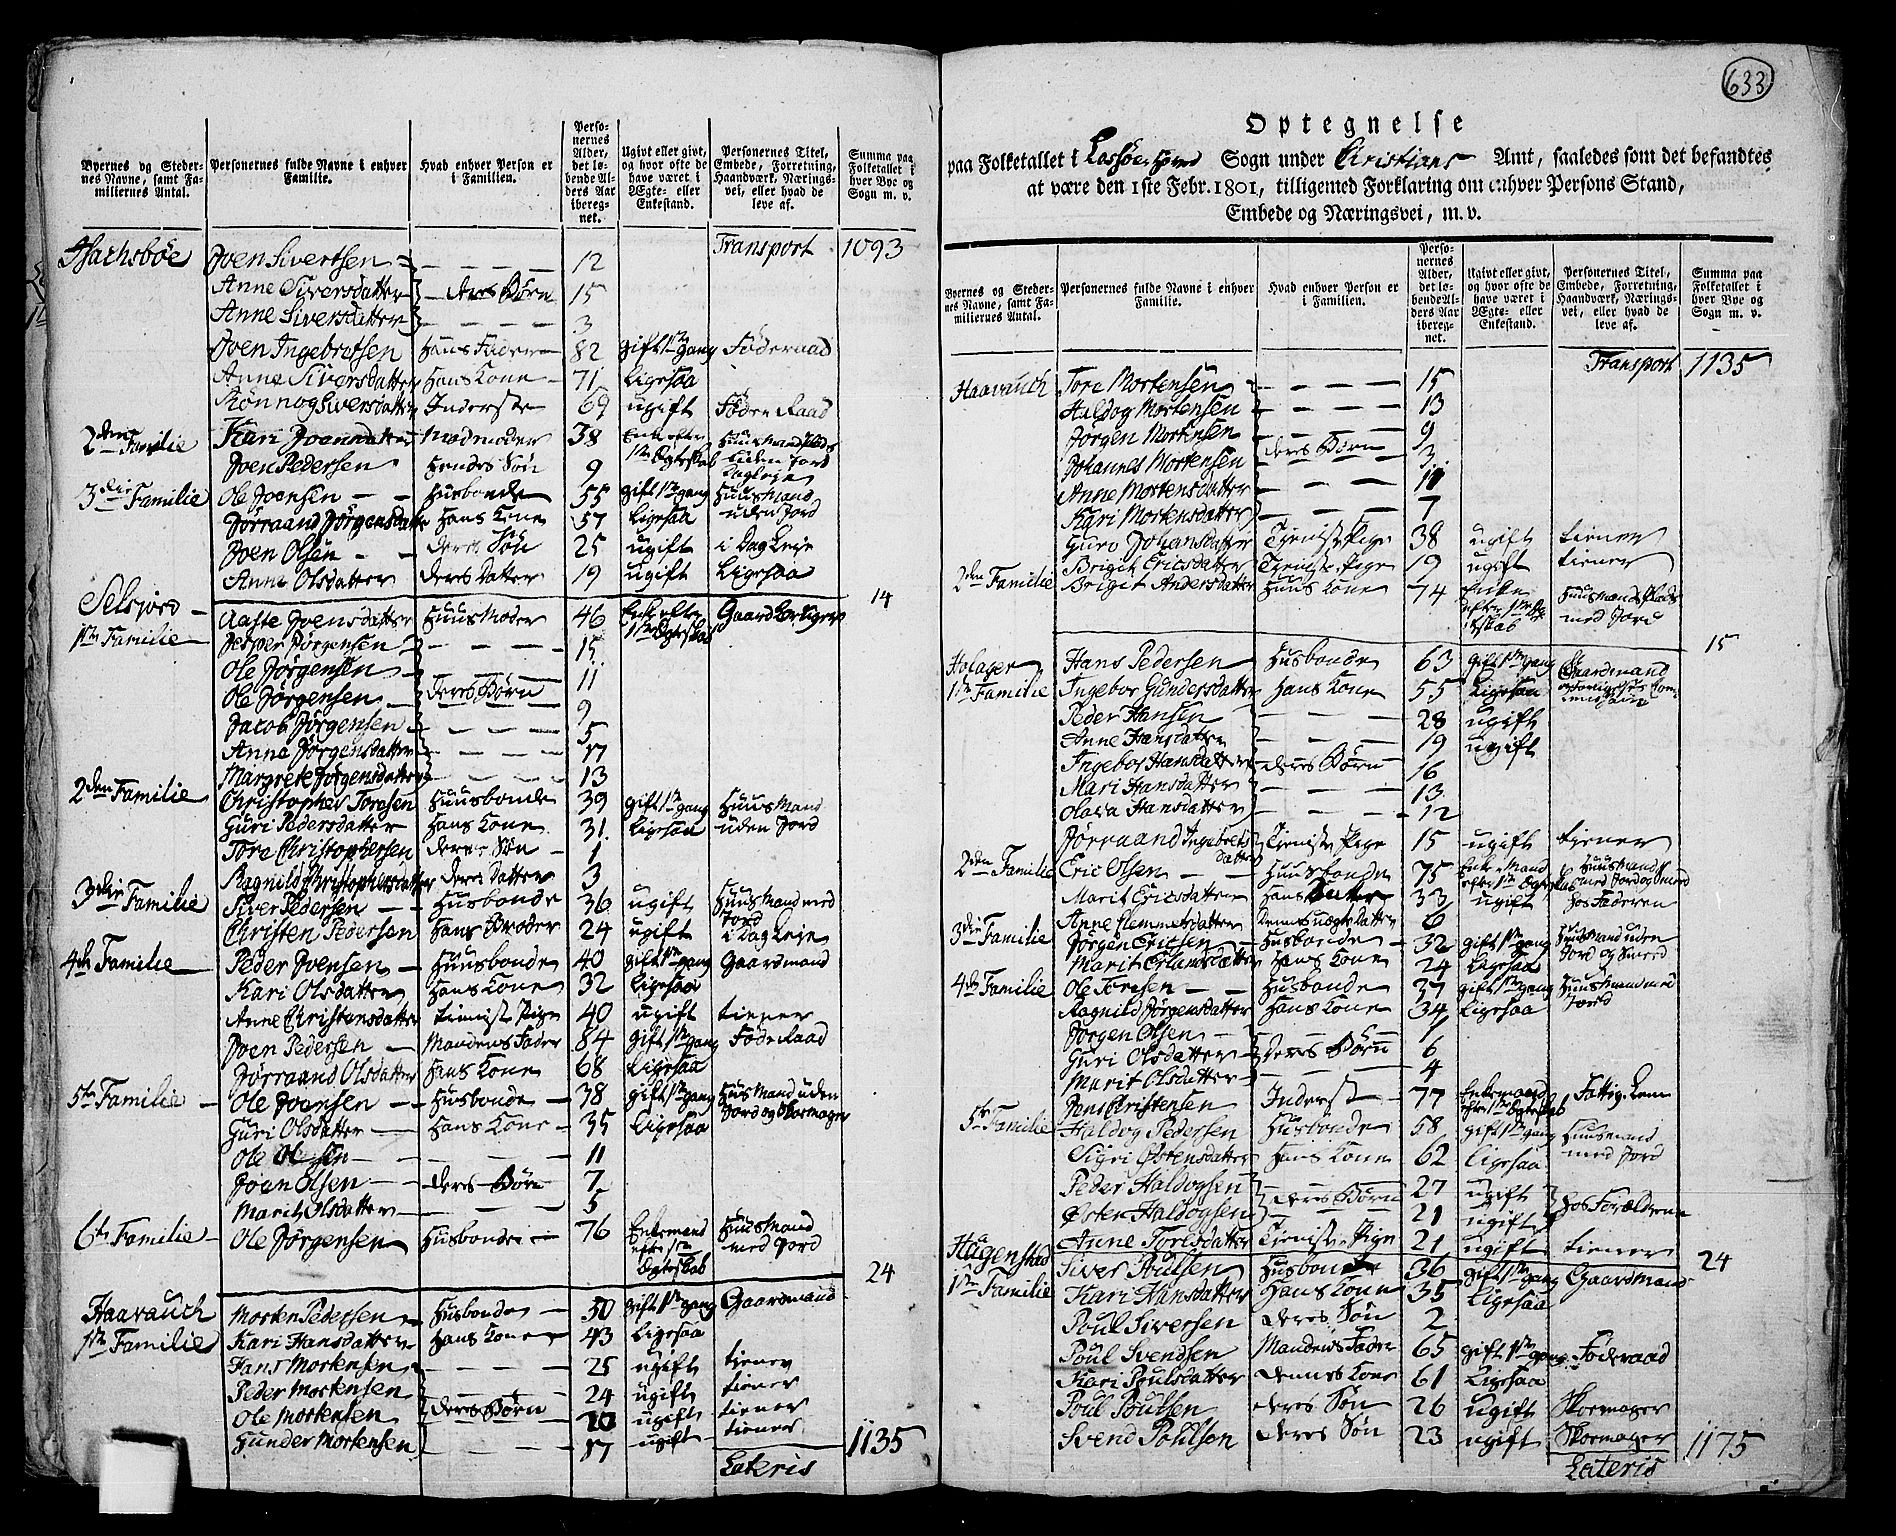 633
Byernes og Stedernes Navne, samt Familiernes Antal. Personernes fulde Navne i enhver Familie. Hvad enhver Person er i Familien. Personernes Alder, det løbende Alders Aar iberegnet. Ugivt eller givt, og hvor ofte de have været i Ægte- eller Enkestand. Personernes Titel, Embede, Forretning, Haandværk, Næringsvei, eller hvad de leve af. Summa paa Folketallet i hver Bye og Sogn m. v.
Transport 1093
Joen Sivertsen 12
Anne Siversdatter deres Børn 15
Anne Siversdatter 3
Joen Ingebretsen Hans Fader 82 gift 1ste gang Føderaad
Anne Siversdatter Hans Kone 71 Ligesaa
Rønnog Siversdatter Inderste 69 ugift Føderaad
2den Familie Kari Joensdatter Madmoder 38 Enke efter 1ste Ægteskab
Joen Pedersen Hendes Søn 9
3die Familie Ole Joensen Husbonde 55 gift 1ste gang Huusmand uden Jord
Jørraand Jørgensdatter Hans Kone 57 Ligesaa
Joen Olsen deres Søn 25 ugift i Dag Leje
Anne Olsdatter deres Datter 19 ugift Ligesaa
14
Selsjord
1ste Familie Aaste Joensdatter Huusmoder 46 Enke efter 1ste Ægteskab Gaardbruger
Jesper Jørgensen 15
Ole Jørgensen 11
Ole Jørgensen deres Børn 9
Jacob Jørgensen 5
Anna Jørgensdatter 17
Margrete Jørgensdatter 13
2den Familie Christopher Toresen Huusbonde 39 gift 1ste gang Huusmand uden Jord
Guri Pedersdatter Hans Kone 31 Ligesaa
Tore Christophersen deres Søn 1
Ragnild Christophersdatter deres Datter 3
3die Familie Siver Pedersen Husbonde 36 ugift Huusmand med Jord
Christen Pedersen Hans Broder 24 ugift i Dag Leje
4de Familie Peder Joensen Huusbonde 40 gift 1ste gang Gaardmand
Kari Olsdatter Hans Kone 32 Ligesaa
Anne Christensdatter tieniste Pige 40 ugift tiener
Joen Pedersen Mandens Fader 84 gift 1ste gang Føderaad
Jørraand Olsdatter Hans Kone 68 Ligesaa
5te Familie Ole Joensen Husbonde 38 gift 1ste gang Husmand uden Jord og Skomager
Guri Olsdatter Hans Kone 35 Ligesaa
Ole Olsen 11
Joen Olsen deres Børn 7
Marit Olsdatter 5
6te Familie Ole Jørgensen Husbonde 76 Enkemand efter 1ste Ægteskab Huusmand med Jord
24
Haavauch
1ste Familie Morten Pedersen Husbonde 50 gift 1ste gang Gaardmand
Kari Hansdatter Hans Kone 43 Ligesaa
Hans Mortensen 25 ugift tiener
Peder Mortensen 24 ugift tiener
Ole Mortensen deres Børn 20 ugift tiener
Gunder Mortensen 17 ugift
Lateris 1135
Optegnelse
paa Folketallet i Sogn under Christians Amt, saaledes som det befandtes
at være den 1ste Febr. 1801, tilligemed Forklaring om enhver Persons Stand,
Embede og Næringsvei, m. v.
Byernes og Stedernes Navne, samt Familiernes Antal. Personernes fulde Navne i enhver Familie. Hvad enhver Person er i Familien. Personernes Alder, det løbende Alders Aar iberegnet. Ugivt eller givt, og hvor ofte de have været i Ægte- eller Enkestand. Personernes Titel, Embede, Forretning, Haandværk, Næringsvei, eller hvad de leve af. Summa paa Folketallet i hver Bye og Sogn m. v.
Transport 1135
Haavauch Tore Mortensen 15
Haldog Mortensen 13
Jørgen Mortensen 9
Johannes Mortensen deres Børn 3
Anne Mortensdatter 11
Kari Mortensdatter 7
Guro Johansdatter Tjeniste Pige 38 ugift tiener
Brigit Ericsdatter Tjeniste Pige 19 ugift tiener
2den Familie Brigit Andersdatter Huus Kone 74 Enke efter 1ste Ægteskab Huusmandsplads med Jord
15
Hofager Hans Pedersen Husbonde 63 gift 1ste gang Gaardmand
1ste Familie Ingebor Gundersdatter Hans Kone 55 Ligesaa
Peder Hansen 28 ugift
Anne Hansdatter 19 ugift
Ingebor Hansdatter deres Børn 16
Mari Hansdatter 13
Olava Hansdatter 12
Jørraand Ingebretsdatter Tjeniste Pige 15 ugift tiener
2den Familie Eric Olsen Huusbonde 75 Enke Mand efter 1ste Ægteskab Huusmand med Jord og Smed
Marit Ericsdatter Hans Datter 33 ugift hos Faderen
Anne Clemmetsdatter Dennes uægte Datter 6
3die Familie Jørgen Ericsen Husbonde 32 gift 1ste gang Huusmand uden Jord og Smed
Marit Erlandsdatter Hans Kone 24 Ligesaa
4de Familie Ole Toresen Husbonde 37 gift 1ste gang Huusmand med Jord
Ragnild Jørgensdatter Hans Kone 34 Ligesaa
Jørgen Olsen 1
Guri Olsdatter Deres Børn 6
Marit Olsdatter 4
Jens Christensen Inderst 77 Enkemand efter 1ste Ægteskab Fattig Lem
5te Familie Haldog Pedersen Husbonde 58 gift 1ste gang Huusmand med Jord
Sigri Østensdatter Hans Kone 62 Ligesaa
Peder Haldogsen deres Børn 27 ugift hos Forældrene
Østen Haldogsen 21 ugift
Anne Toresdatter Tjeniste Pige 21 ugift tiener
24
Hagenstad Siver Poulsen Husbonde 36 gift 1ste gang Gaardmand
1ste Familie Kari Hansdatter Hans Kone 35 Ligesaa
Poul Siversen deres Søn 2
Poul Svendsen Mandens Fader 65 gift 1ste gang Føderaad
Kari Poulsdatter dennes Kone 61 Ligesaa
Poul Poulsen deres Søn 26 ugift Skomager
Svend Pohlsen deres Søn 23 ugift Skomager
Lateris 1175